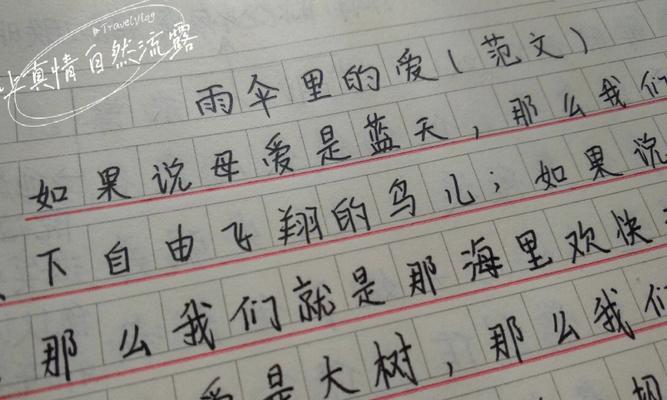 TravelVlog
真情自然流露
雨伞里的爱（范文）
如果说母爱是蓝天，那么我们
下自由飞翔的鸟儿；如果说
那么我们就是那海里欢快
爱是大树，那么我们